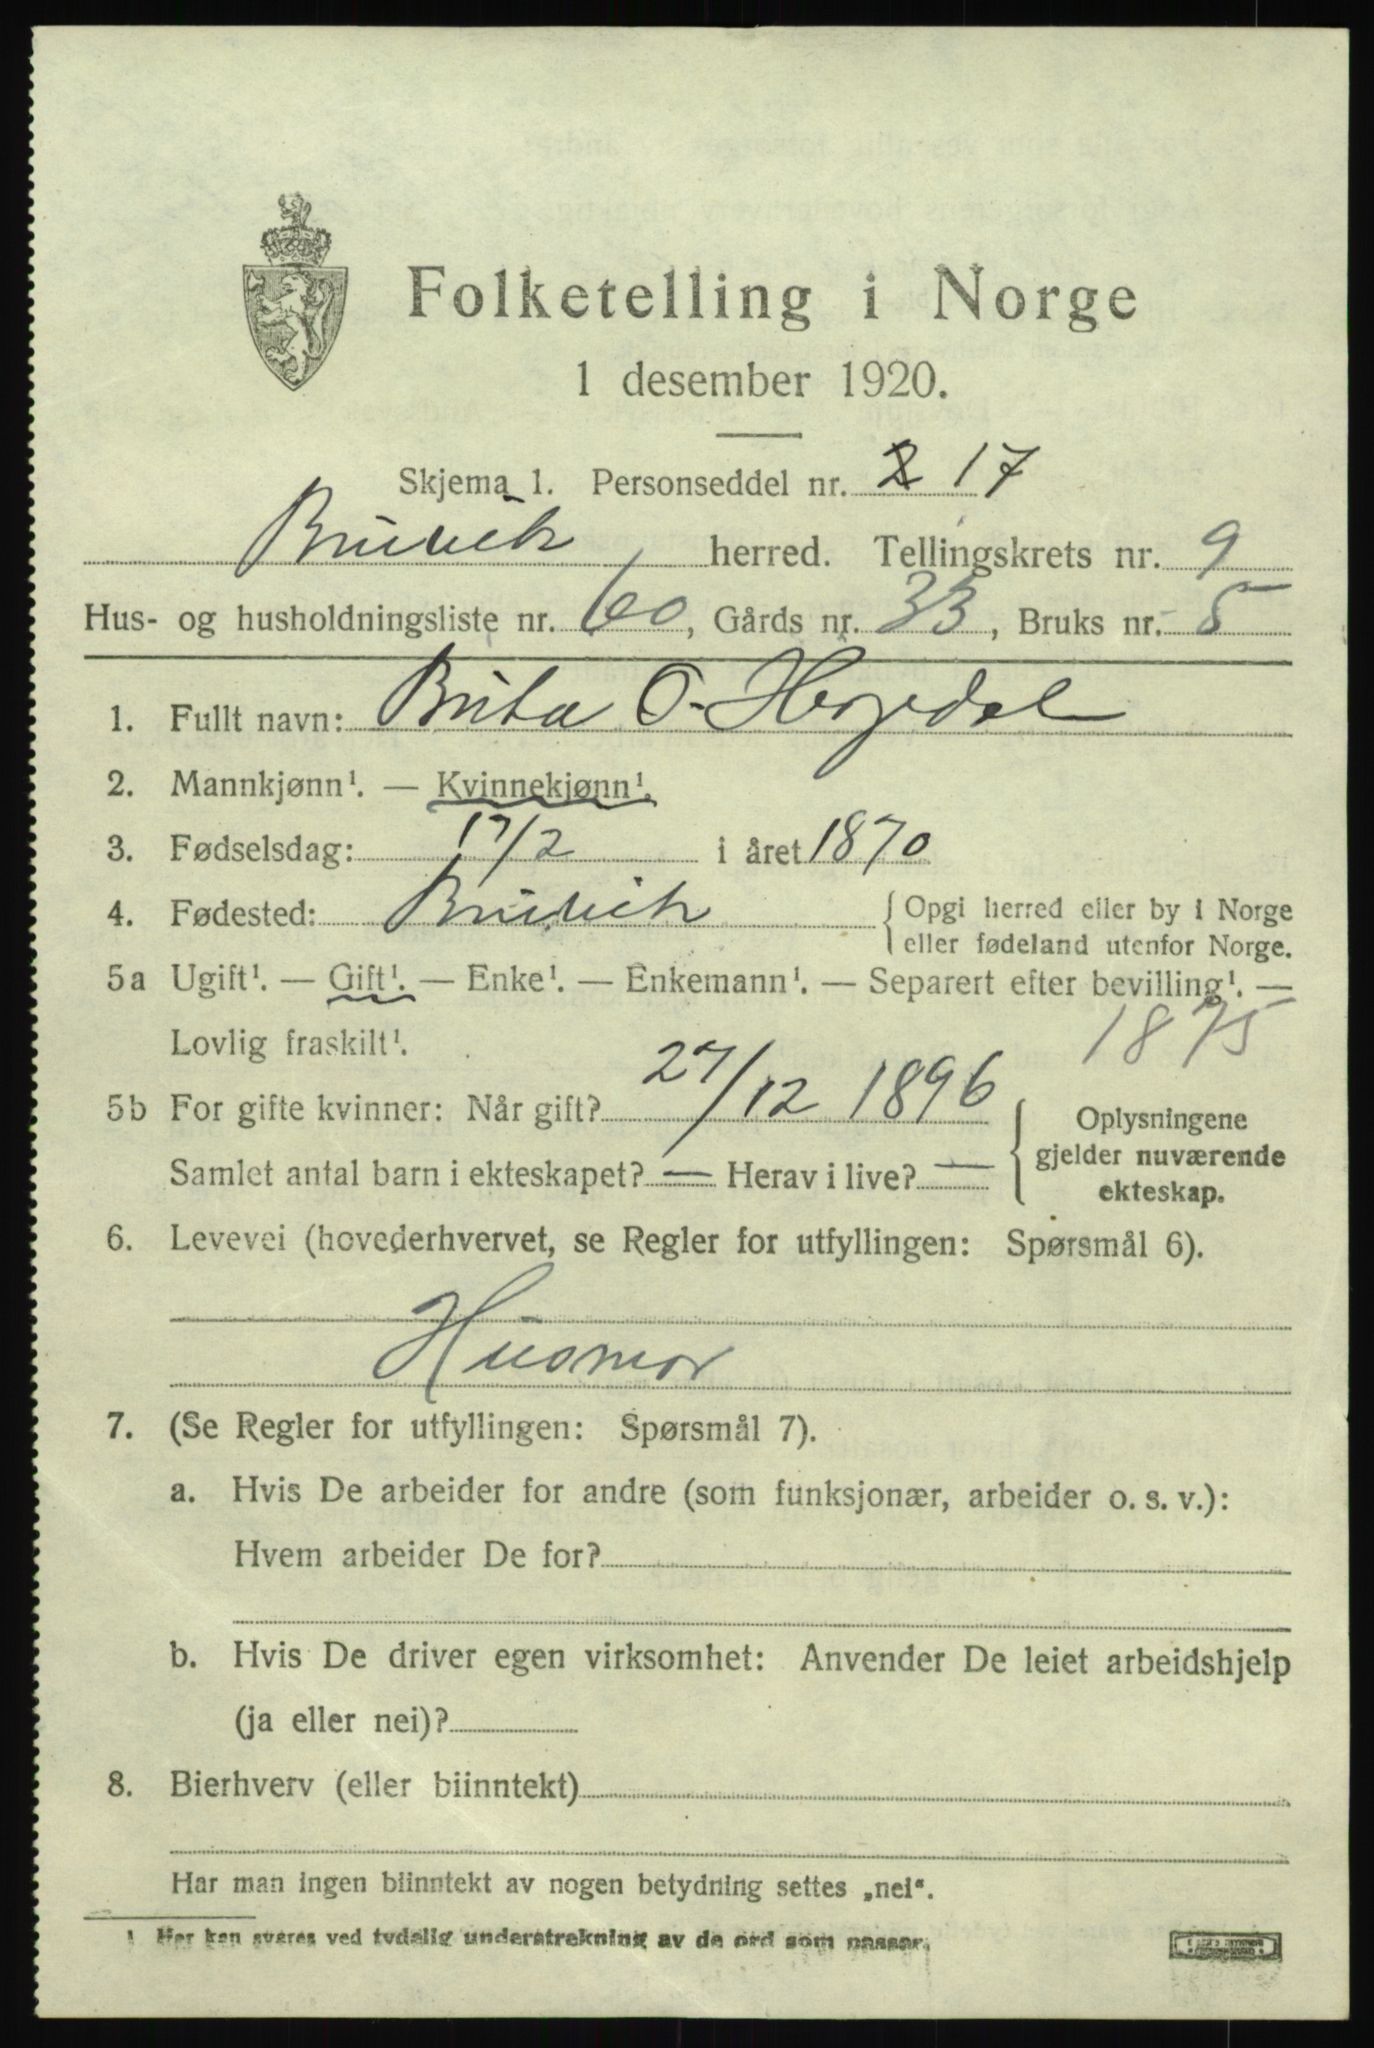 Folketelling i Norge
1 desember 1920.
Skjema 1. Personseddel nr. 2 17
Bruvik herred. Tellingskrets nr. 9
Hus- og husholdningsliste nr. 60, Gårds nr. 33, Bruks nr. 5
1. Fullt navn: Brita O. Herjedal
2. Mannkjønn¹. — Kvinnekjønn¹.
3. Fødselsdag: 17/2 i året 1870
4. Fødested: Bruvik { Opgi herred eller by i Norge
eller fødeland utenfor Norge.
5a Ugift¹. — Gift¹. — Enke¹. — Enkemann¹. — Separert efter bevilling¹. —
Lovlig fraskilt¹. 1875
5b For gifte kvinner: Når gift? 27/12 1896 { Oplysningene
gjelder nuværende
ekteskap.
Samlet antal barn i ekteskapet? — Herav i live? —
6. Levevei (hovederhvervet, se Regler for utfyllingen: Spørsmål 6).
Husmor
7. (Se Regler for utfyllingen: Spørsmål 7).
a. Hvis De arbeider for andre (som funksjonær, arbeider o. s. v.):
Hvem arbeider De for?
b. Hvis De driver egen virksomhet: Anvender De leiet arbeidshjelp
(ja eller nei)?
8. Bierhverv (eller biinntekt)
Har man ingen biinntekt av nogen betydning settes „nei“.
¹ Her kan svares ved tydelig understrekning av de ord som passer.